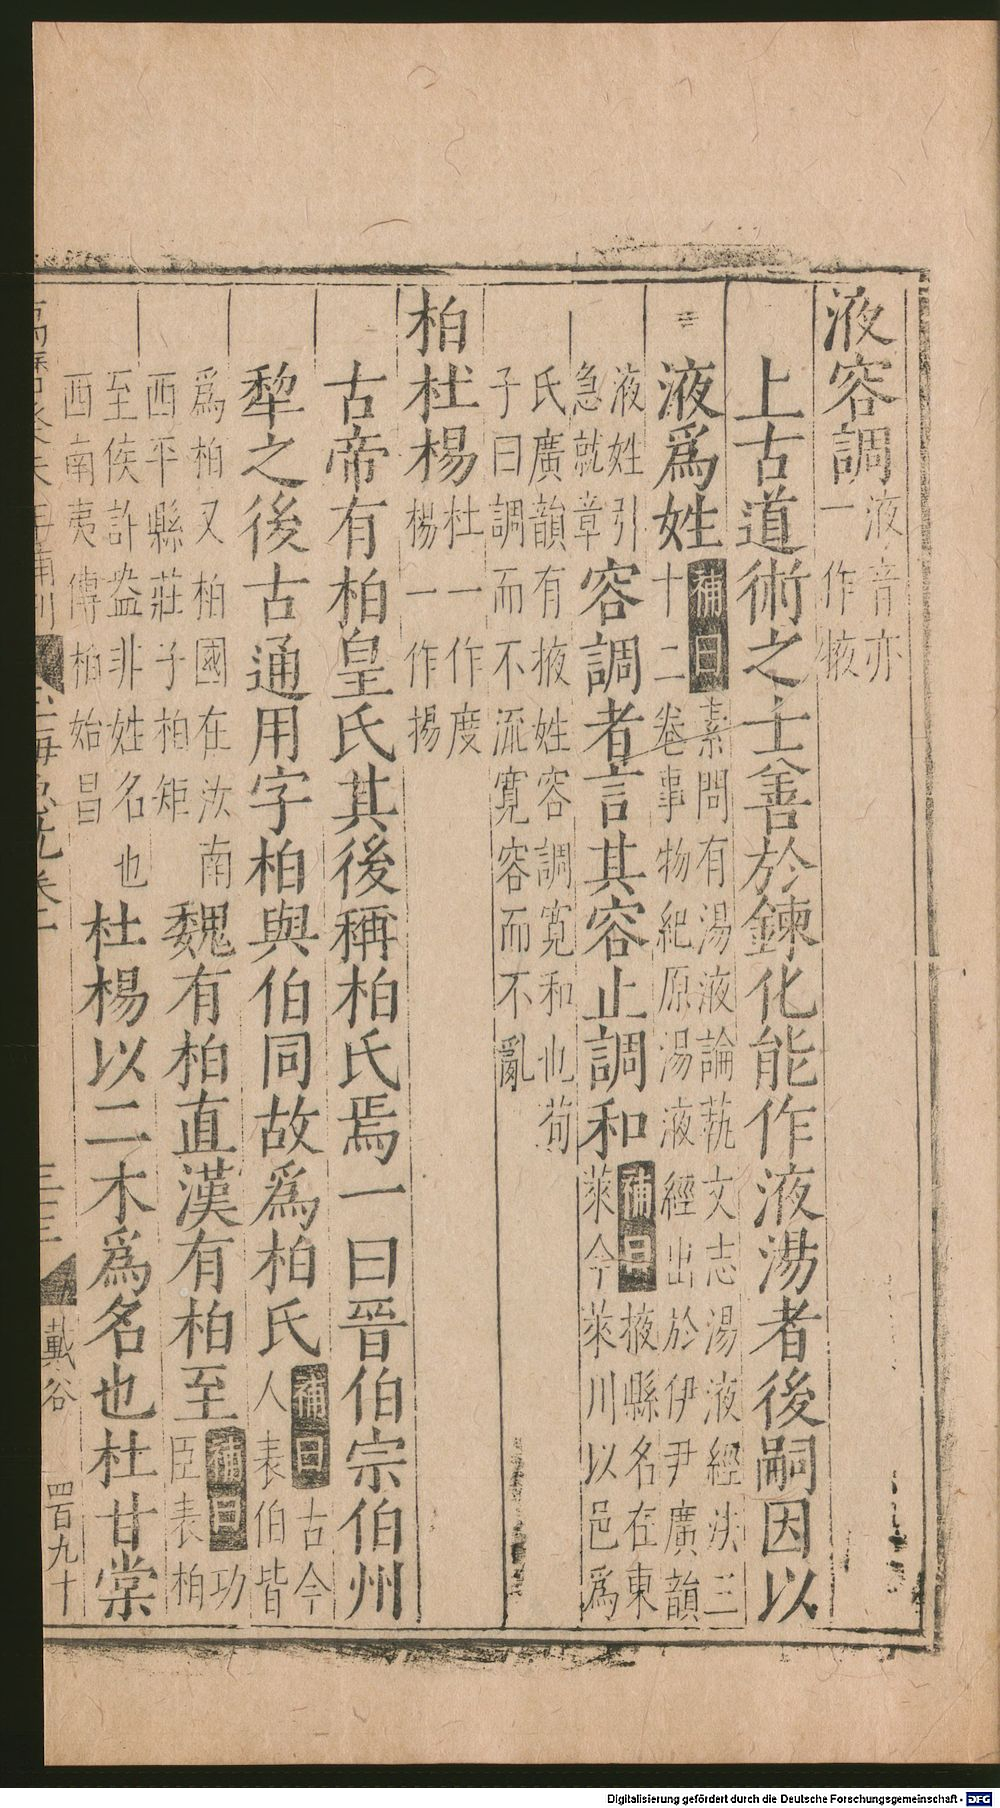 液容調液音亦一作掖
上古道術之士善於鍊化能作液湯者後嗣因以
液爲姓補曰素問有湯液論萟文志湯液經法三十二卷事物紀原湯液經出於伊尹廣韻
液姓引急就章容調者言其容止調和補曰掖縣名在東萊今萊川以邑爲
氏廣韻有掖姓容調寛和也荀子曰調而不流寛容而不亂
柏杜楊杜一作度楊一作揚
古帝有柏皇氏其後稱柏氏焉一曰晉伯宗伯州
犂之後古通用字柏與伯同故爲柏氏補曰古今人表伯皆
爲柏又柏國在汝南西平縣莊子柏矩魏有柏直漢有柏至補曰功臣表柏
至侯許盎非姓名也西南夷傳柏始昌杜楊以二木爲名也杜甘棠
戴谷 四百九十
Digitalisierung gefördert durch die Deutsche Forschungsgemeinschaft - DFG